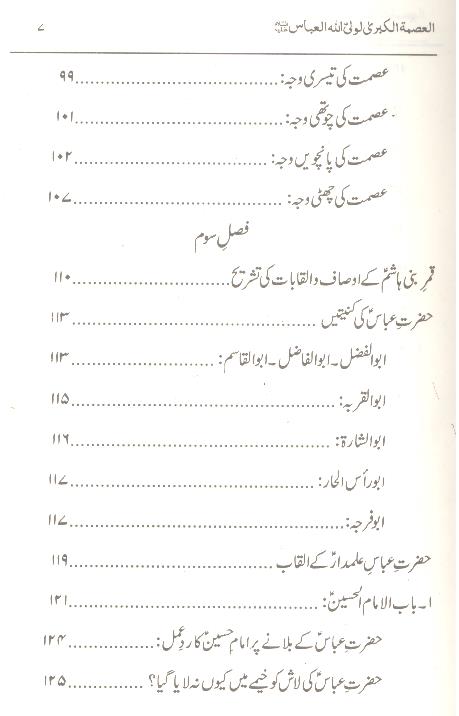 العصمة الکبریٰ لولیّ اللہ العباس علیہ السلام ۷
عصمت کی تیسری وجہ: ۹۹
عصمت کی چوتھی وجہ: ۱۰۱
عصمت کی پانچویں وجہ: ۱۰۲
عصمت کی چھٹی وجہ: ۱۰۷
فصل سوم
قمرِ بنی ہاشمؑ کے اوصاف والقابات کی تشریح ۱۱۰
حضرتِ عباسؑ کی کنیتیں ۱۱۳
ابوالفضل۔ابوالفاضل۔ابوالقاسم: ۱۱۳
ابوالقربہ: ۱۱۵
ابوالشارة: ۱۱۶
ابورأس الحار: ۱۱۷
ابوفرجہ: ۱۱۷
حضرتِ عباسِ علمدارؑ کے القاب ۱۱۹
۱۔باب الامام الحسینؑ: ۱۲۱
حضرتِ عباسؑ کے بلانے پر امامِ حسینؑ کا ردِ عمل: ۱۲۴
حضرتِ عباسؑ کی لاش کو خیمے میں کیوں نہ لایا گیا؟ ۱۲۵